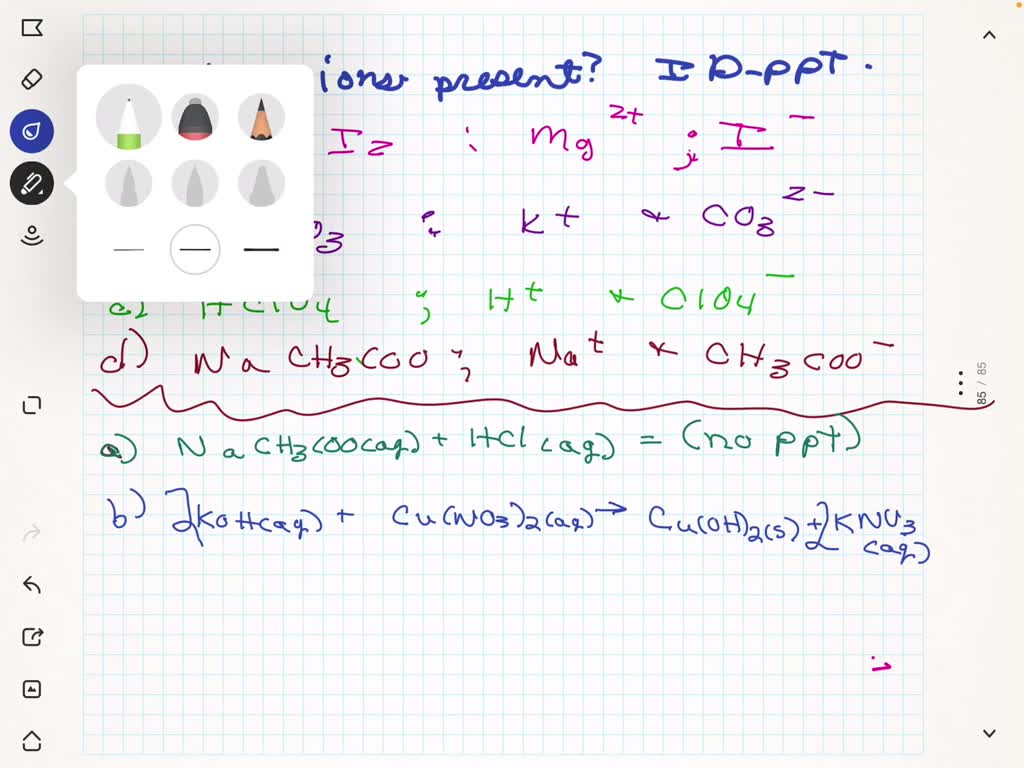 ions present? ID-ppt.
I2 : Mg2+ ; I−
O3 : K+ & CO3 2−
c) HClO4 ; H+ & ClO4−
d) Na CH3COO ; Na+ & CH3COO−
85 / 85
a) NaCH3COO(aq) + HCl(aq) = (no ppt)
b) 2KOH(aq) + Cu(NO3)2(aq) → Cu(OH)2(s) + 2KNO3
(aq)